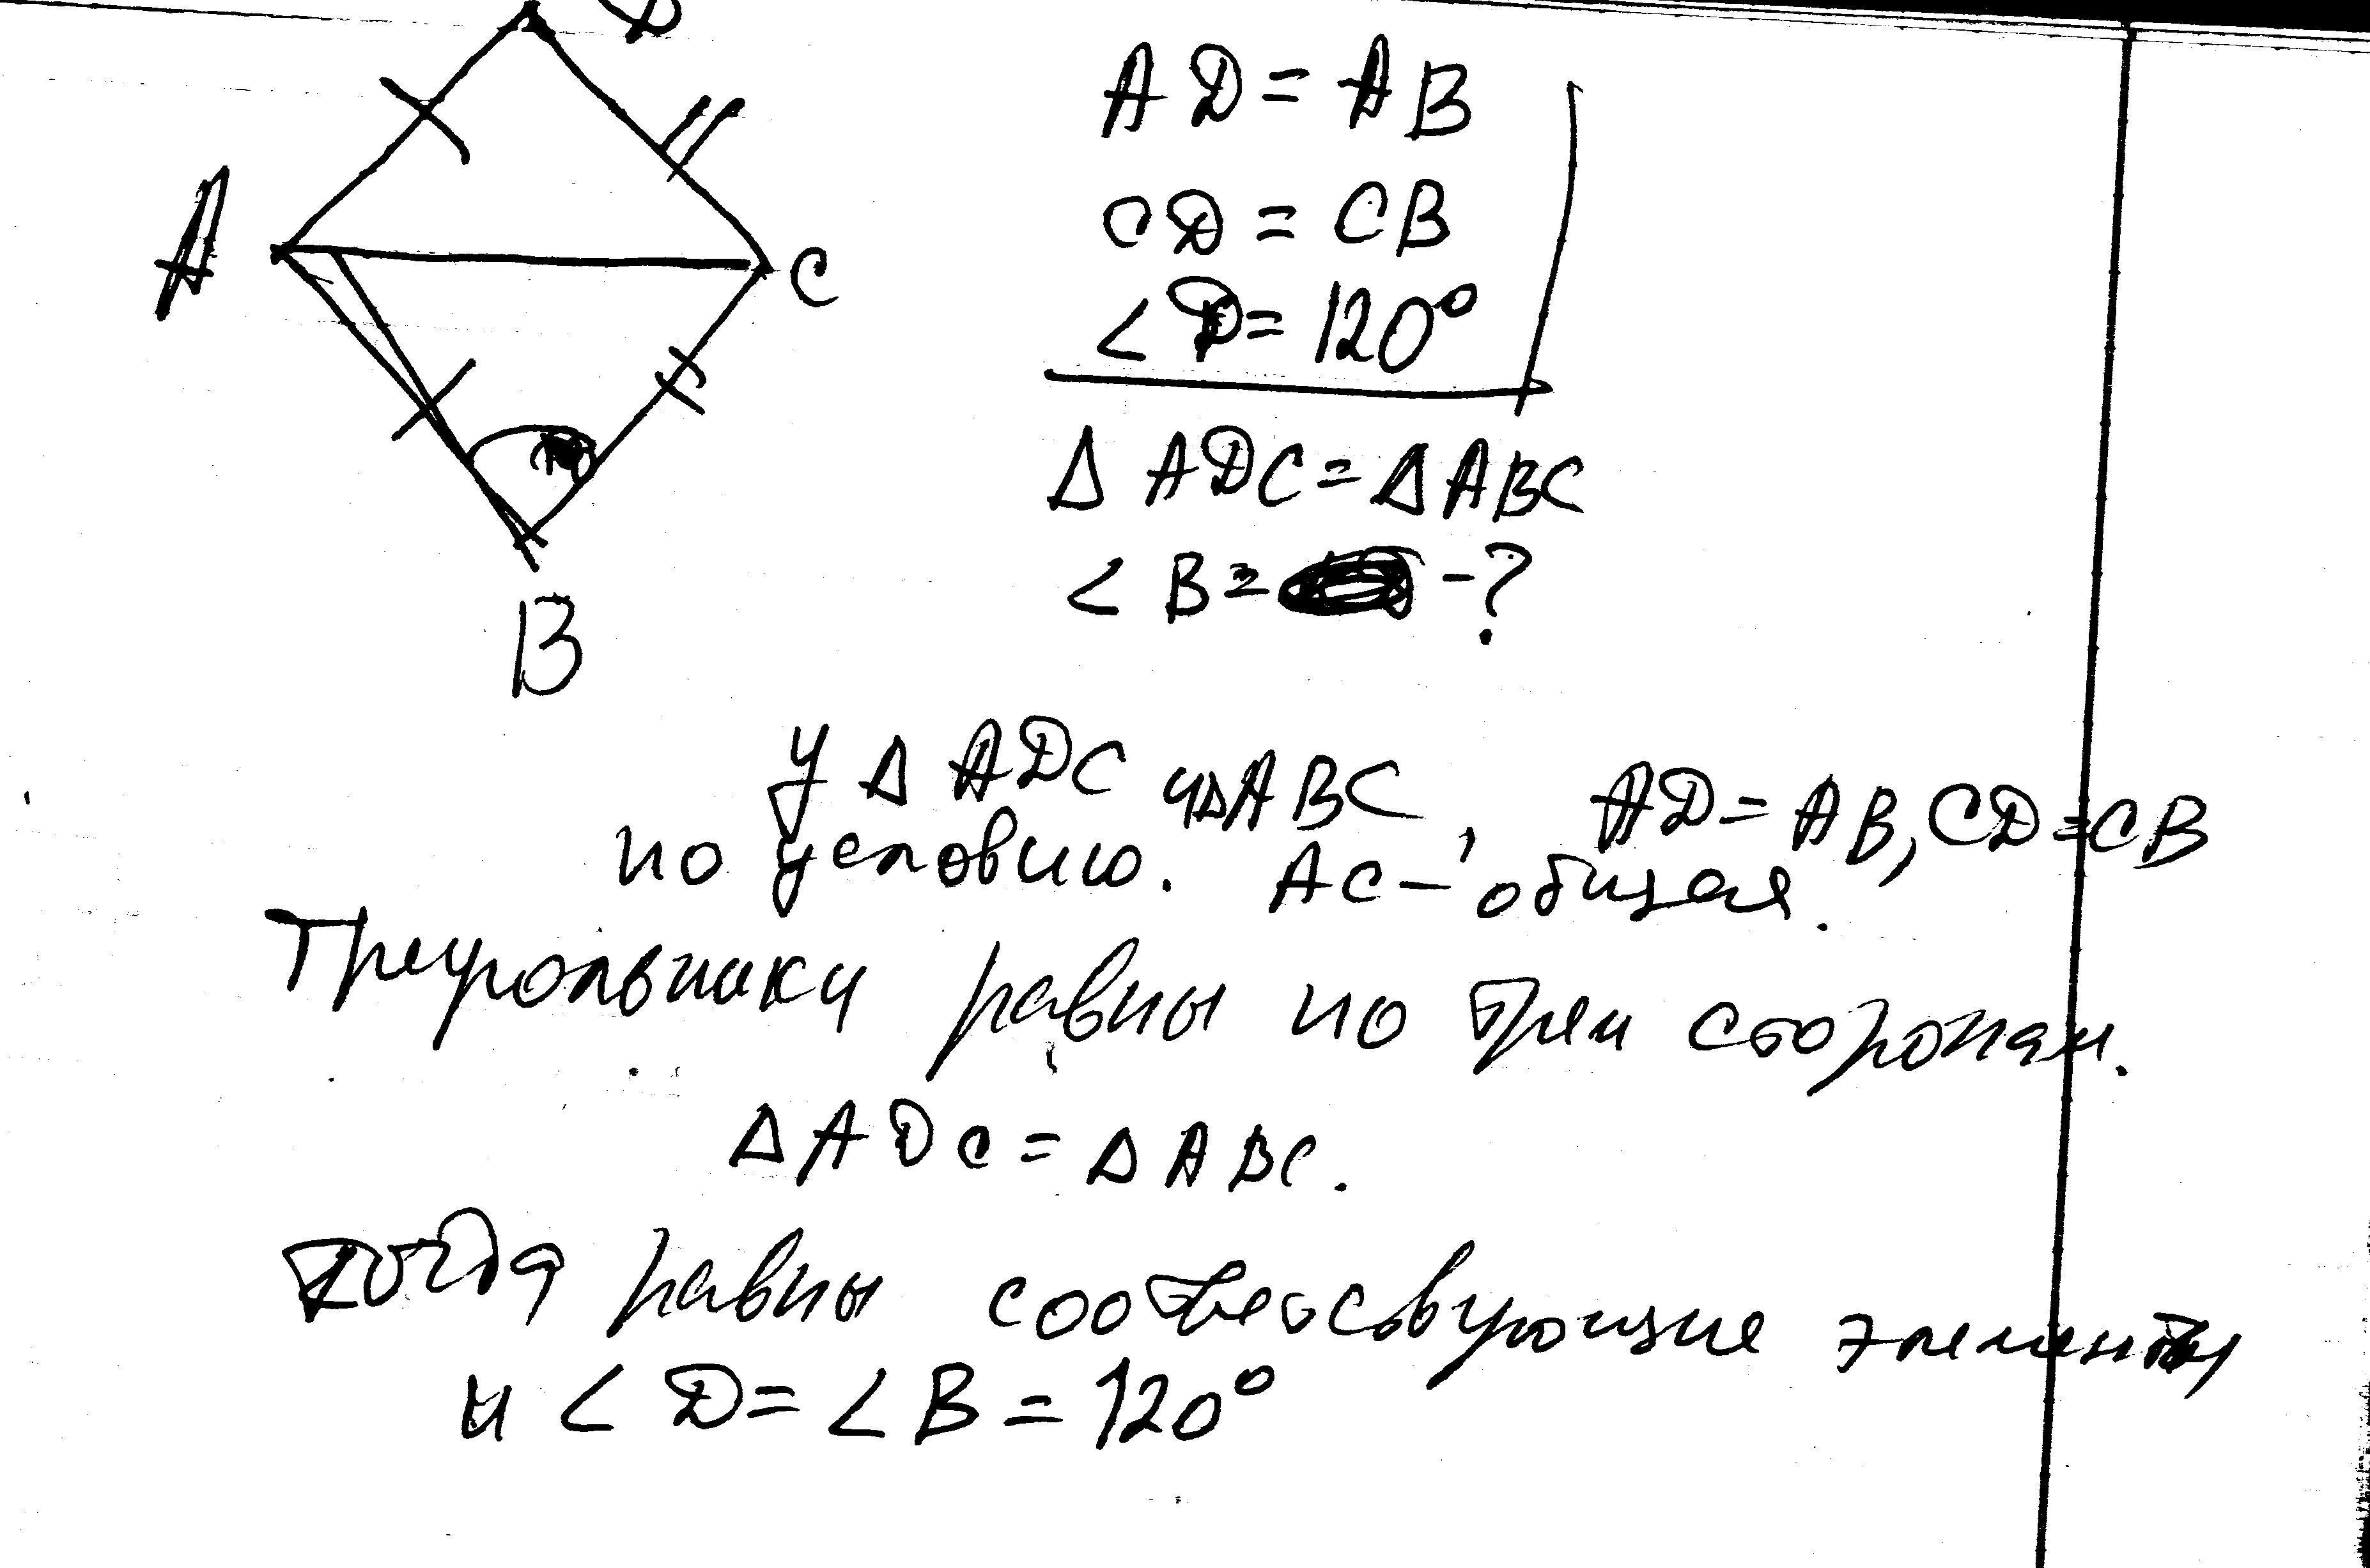 D
A
C
B
AD = AB
CD = CB
< D = 120°
Δ ADC = Δ ABC
< B = - ?
У Δ ADC и Δ ABC, AD = AB, CD = CB
по условию. AC – общая.
Треугольники равны по трем сторонам.
Δ ADC = Δ ABC.
Тогда равны соответсвующие элементы
и < D = < B = 120°